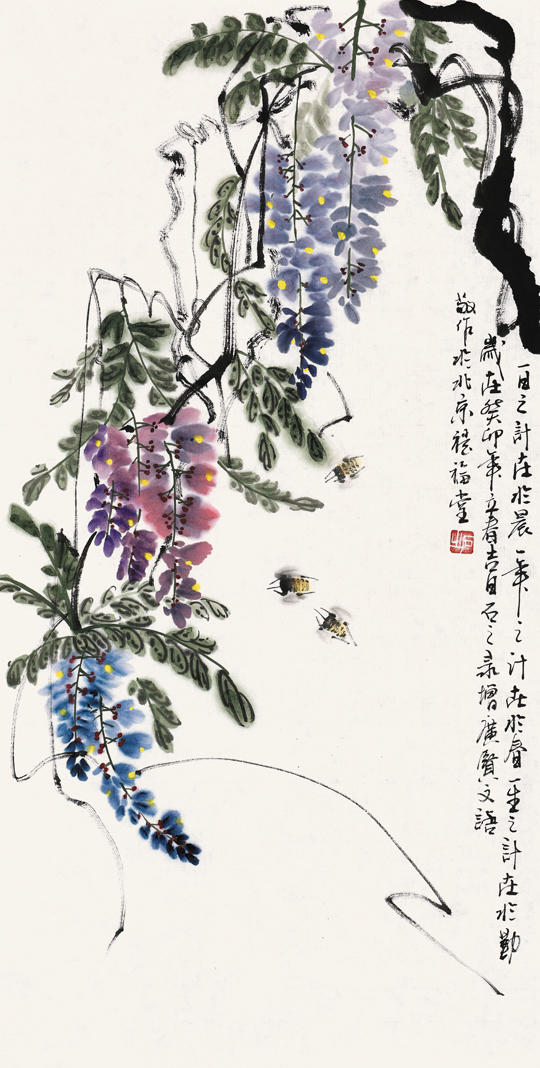 一日之計在於晨一年之計在於春一生之計在於勤
歲在癸卯年立春吉日石之录增廣賢文語
敬作於北京禔福堂